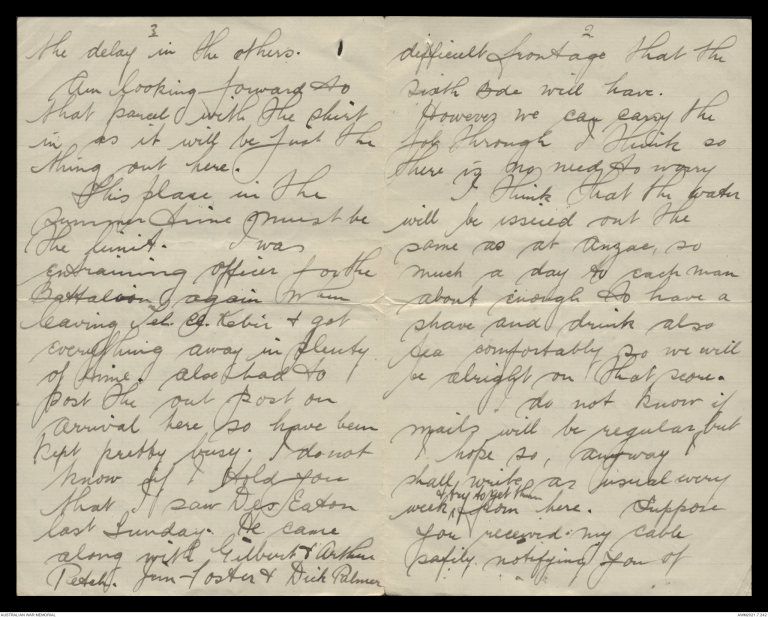 3
the delay in the others.
Am looking forward to
that parcel with the shirt
in as it will be just the
thing out here.
This place in the
summer time must be
the limit. I was
entraining officer for the
Battalion again when
leaving Tel. el. Kebir & got
everything away in plenty
of time. also had to
post the out post on
arrival here so have been
kept pretty busy. I do not
know if I told you
that I saw Des Eaton
last Sunday. He came
along with Gilbert & Arthur
Petch. Jim Foster & Dick Palmer
2
difficult frontage that the
sixth Bde will have.
However we can carry the
job through I think so
there is no need to worry
I think that the water
will be issued out the
same as at Anzac, so
much a day to each man
about enough to have a
shave and drink also
tea comfortably, so we will
be alright on that score.
I do not know if
mails will be regular, but
I hope so, anyway I
shall write as usual every
week & try to get them from here. Suppose
you received my cable
safely notifying you of
AUSTRALIAN WAR MEMORIAL
AWM2021.7.242